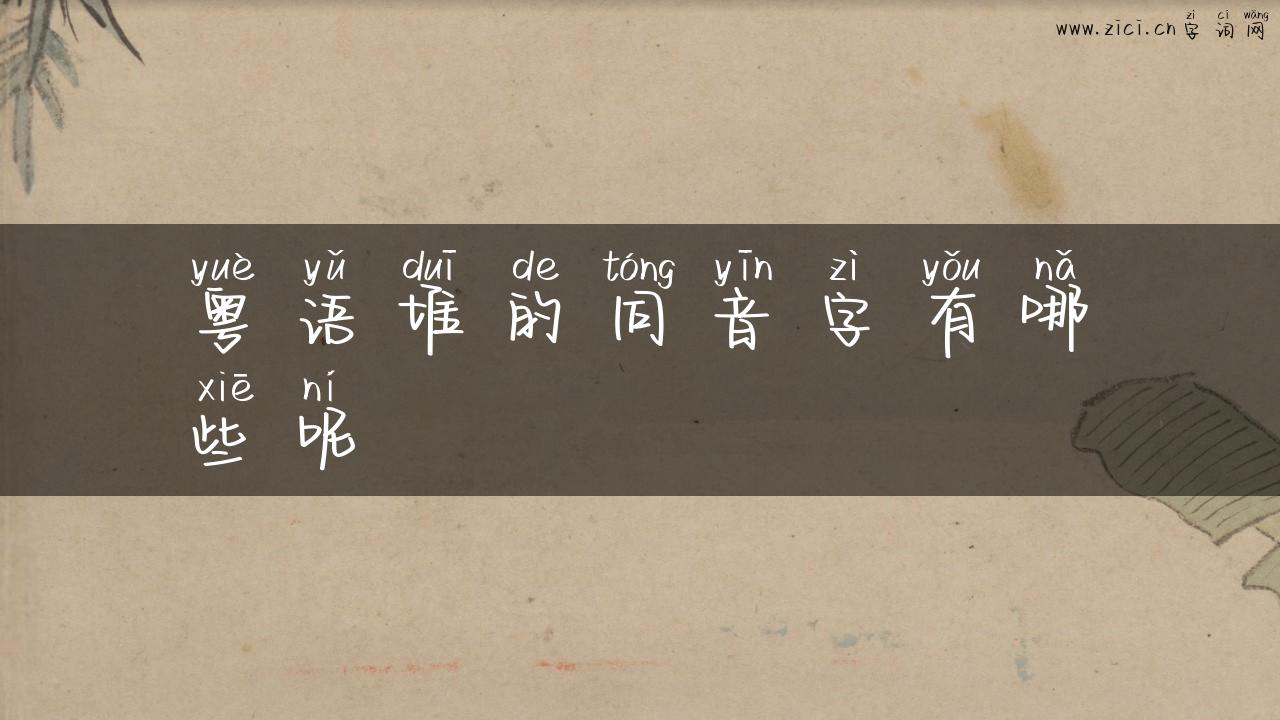 zì cí wǎng
www.zici.cn 字词网
yuè yǔ duī de tóng yīn zì yǒu nǎ
粤语堆的同音字有哪
xiē ní
些呢